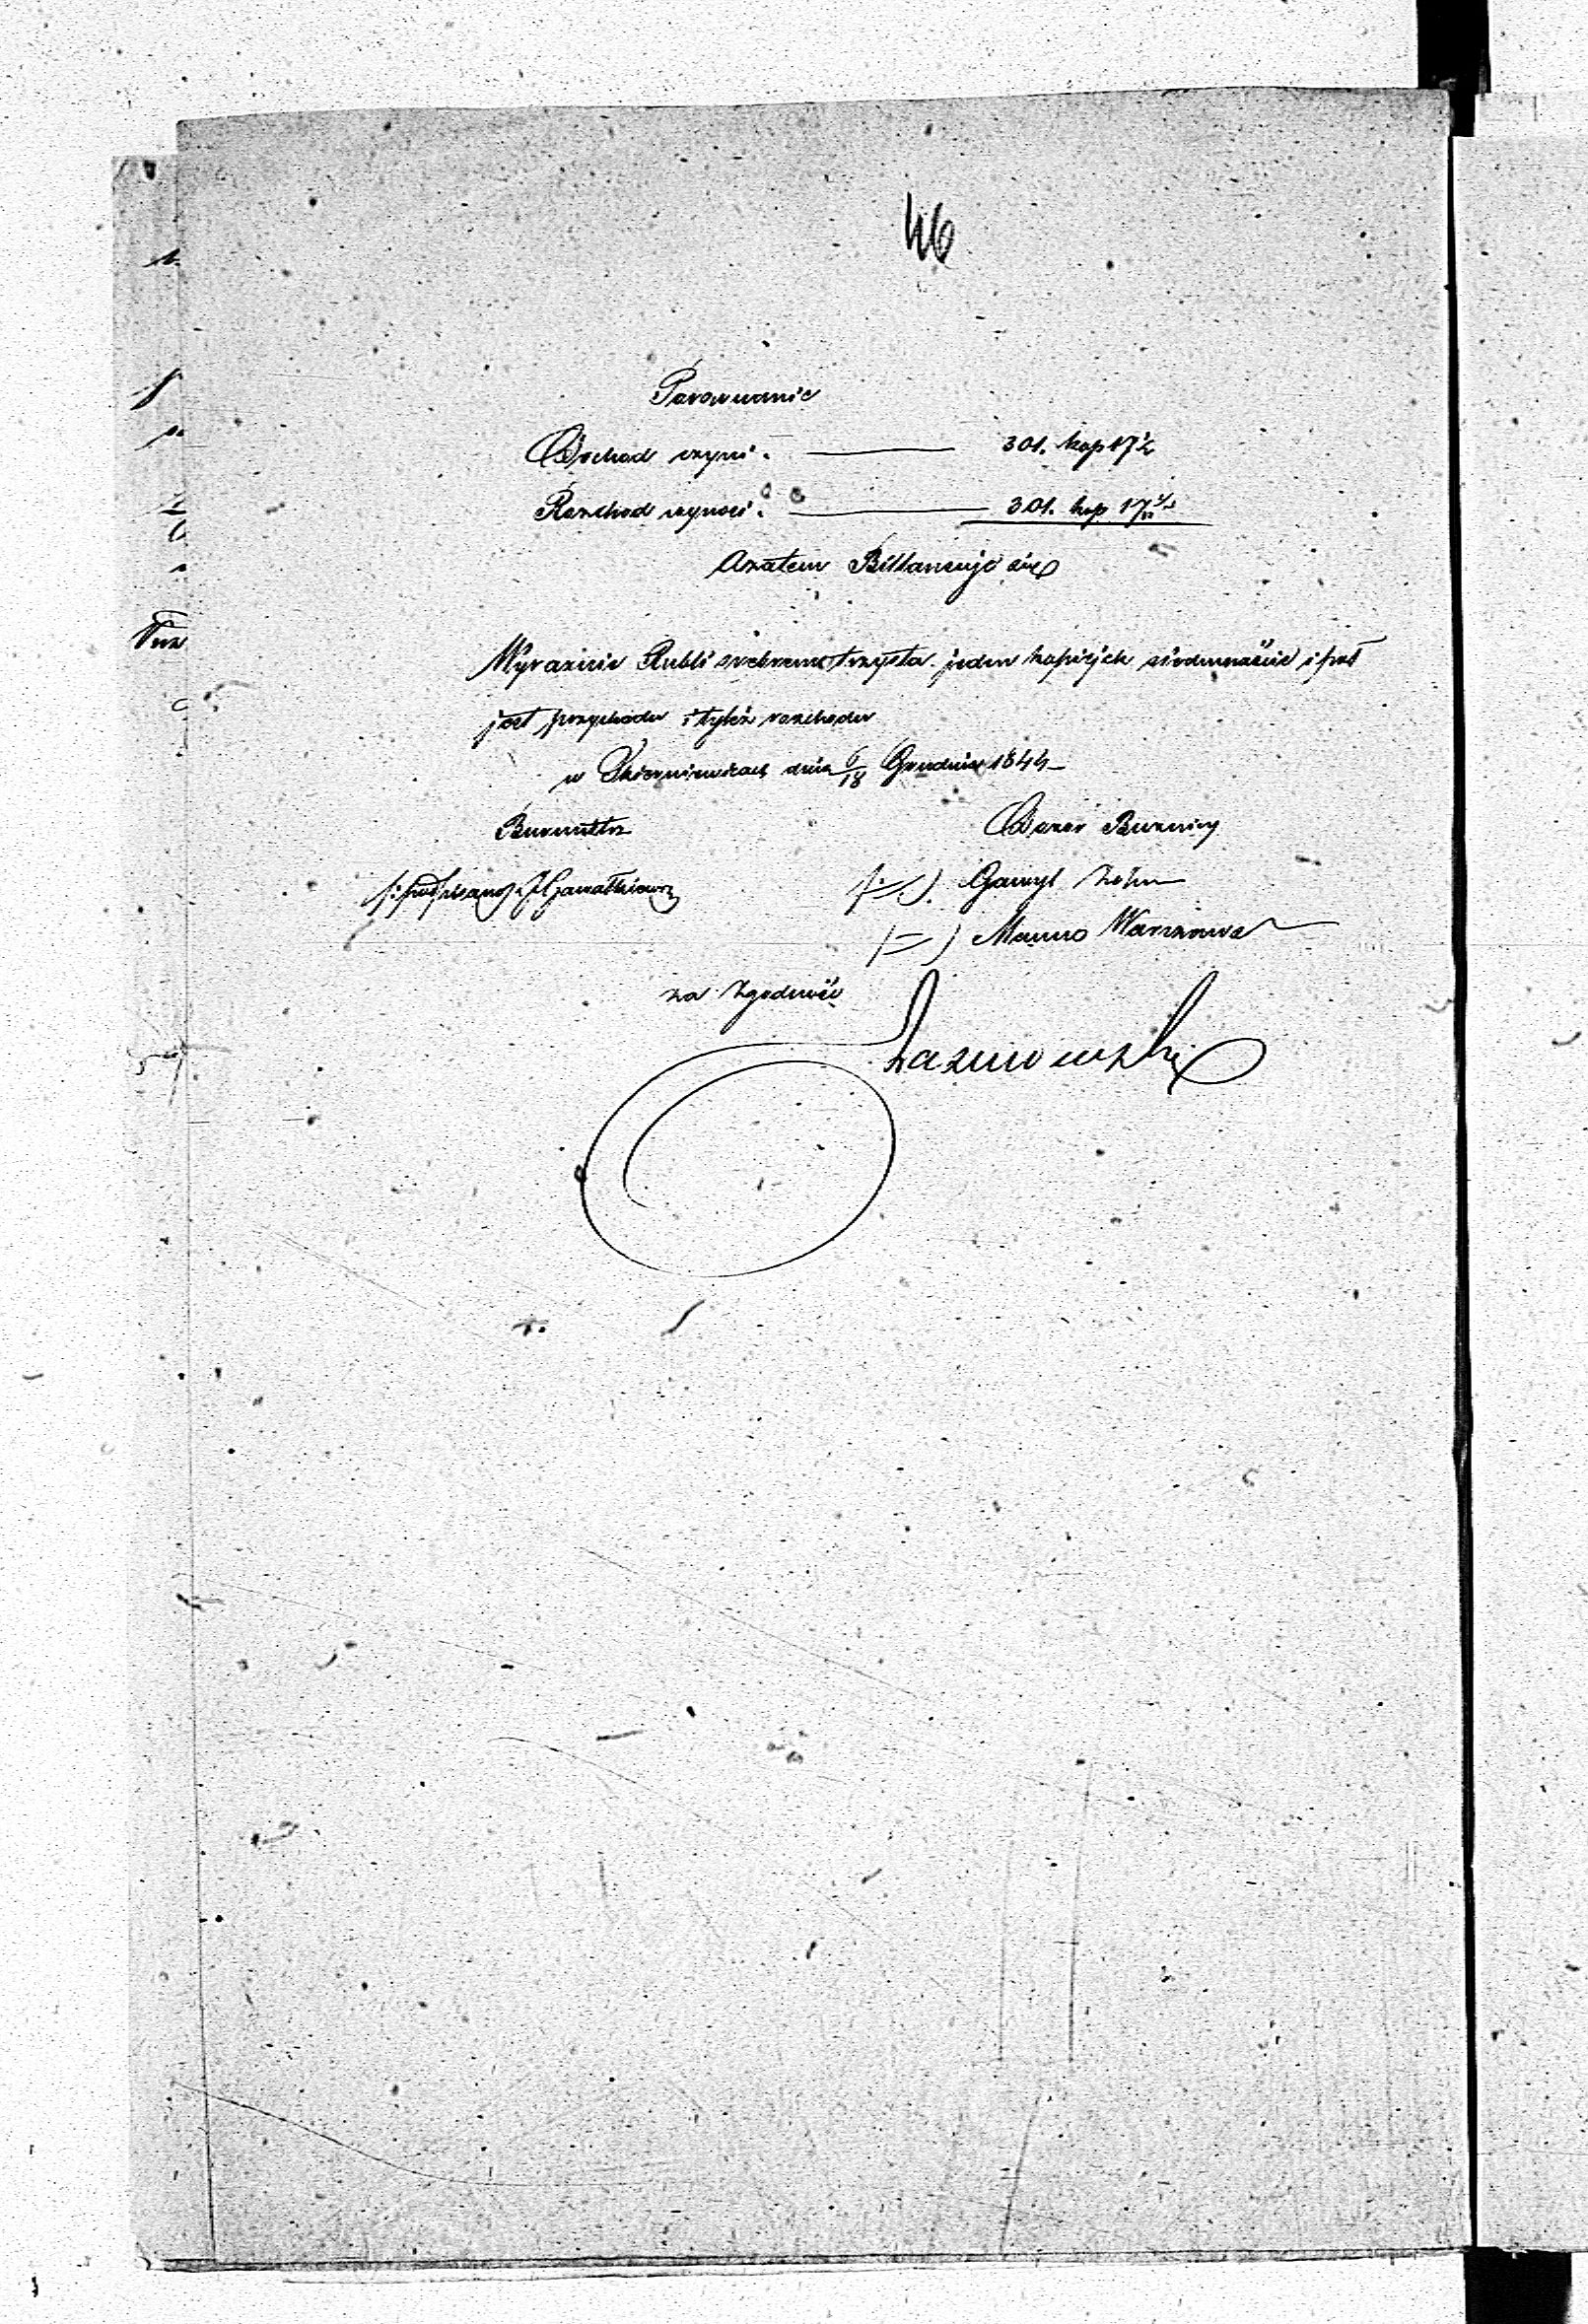 46
Porownanie
Dochod czyni. 301. kop 17½
Rozchod wynosi. 301. kop 17½
Azatem Billansuje się
Wyraznie Rubli srebrem trzysta jeden kopiejek siedmnaście i poł
jest przychodu i tyleż rozchodu
w Skierniewicach dnia 6/18 Grudnia 1844
Burmistrz
Dozor Buznicy
podpisano
za Zgodność